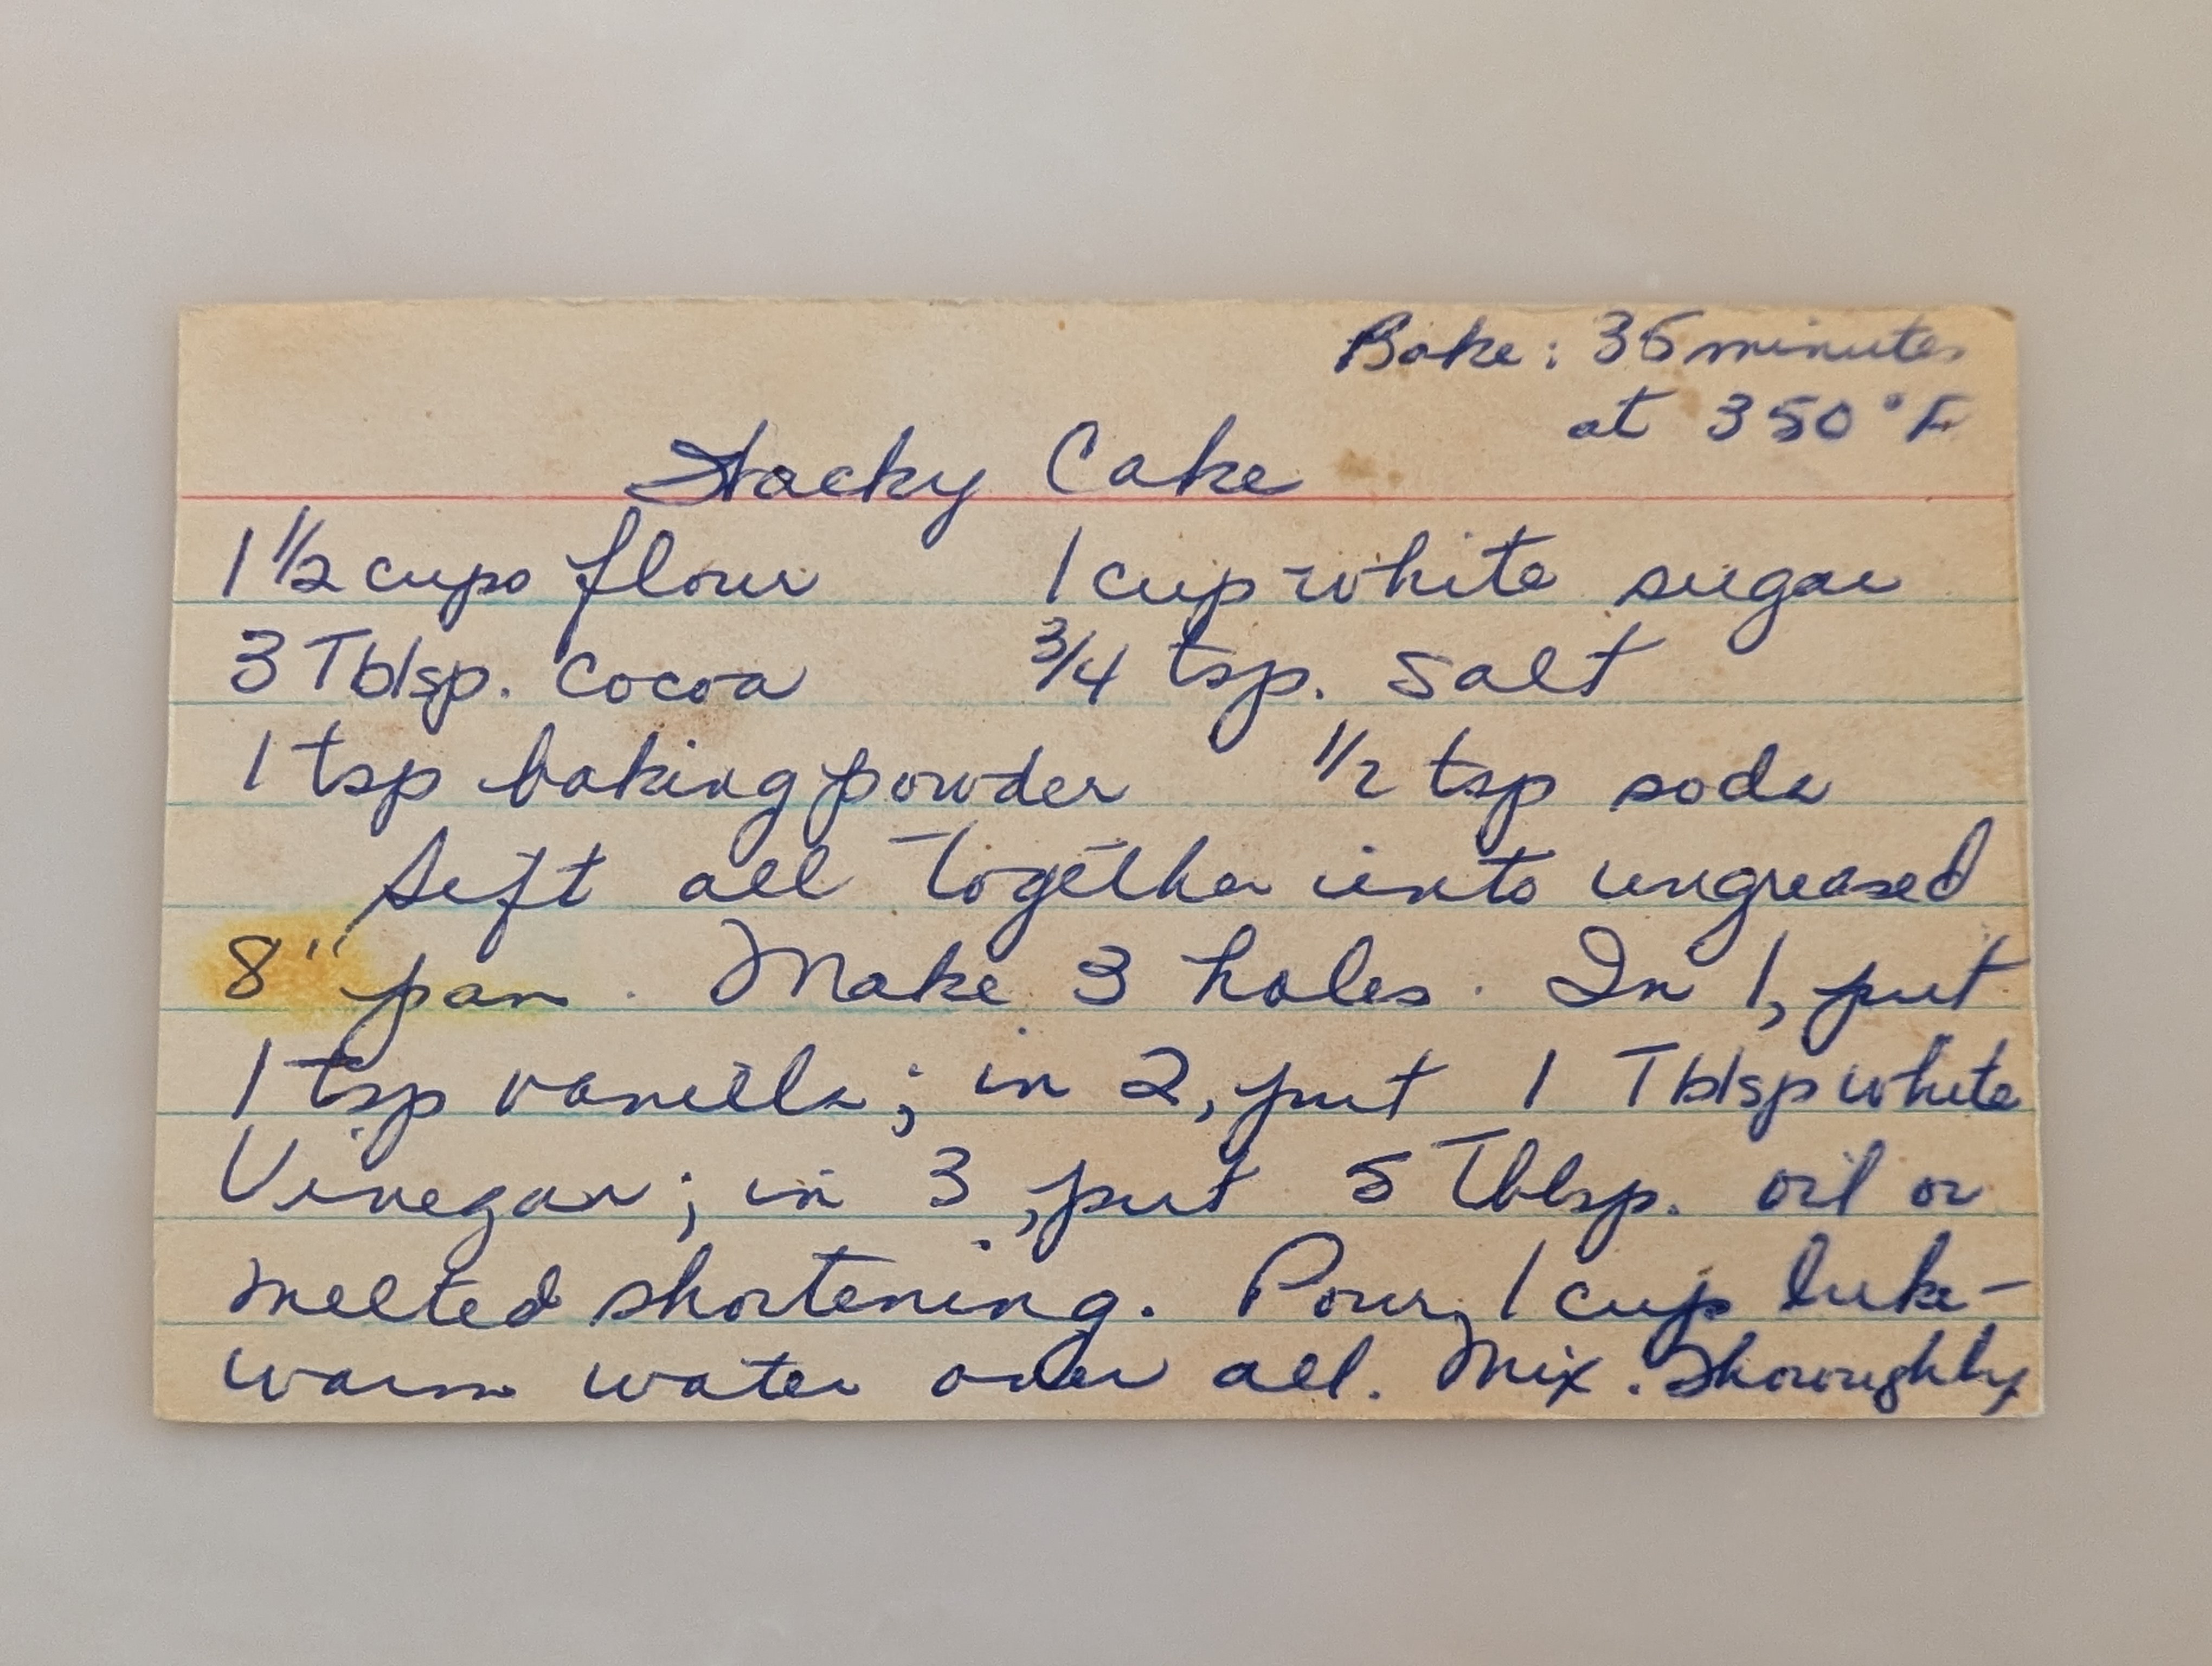 Bake: 35 minutes
at 350°F
Cake
1 1/2 cups flour 1 cup white sugar
3 Tblsp. cocoa 3/4 tsp. salt
1 tsp baking powder 1/2 tsp soda
Sift all together into ungreased
8" pan. Make 3 holes. In 1, put
1 tsp vanilla; in 2, put 1 Tblsp white
Vinegar; in 3, put 5 Tblsp. oil or
melted shortening. Pour 1 cup luke-
warm water over all. Mix. Thoroughly